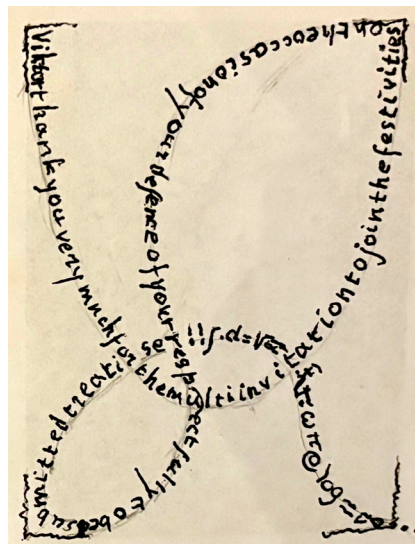 Viktorthankyouverymuchforthemultiinvitationtojointhefestivities
ontheoccasionofyourdefenceofyourrespectfullytobesubmittedtreatise!!